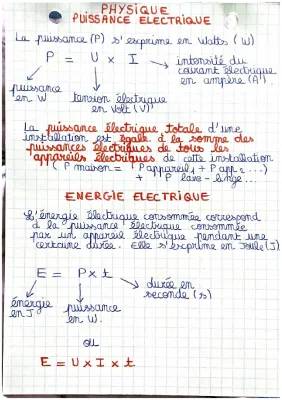 PHYSIQUE
PUISSANCE ELECTRIQUE
La puissance (P) s'exprime en Watts (W)
P = U x I → intensité du
courant électrique
en ampère (A)
puissance
en W
tension électrique
en Volt (V)
La puissance électrique totale d'une
installation est égale à la somme des
puissances électriques de tous les
appareils électriques de cette installation
(P maison = P appareil 1 + P app 2 ...)
+ P lave-linge...
ENERGIE ELECTRIQUE
L'énergie électrique consommée correspond
à la puissance électrique consommée
par un appareil électrique pendant une
certaine durée. Elle s'exprime en Joule (J)
E = P x t → durée en
seconde (s)
énergie
en J
puissance
en W.
ou
E = U x I x t